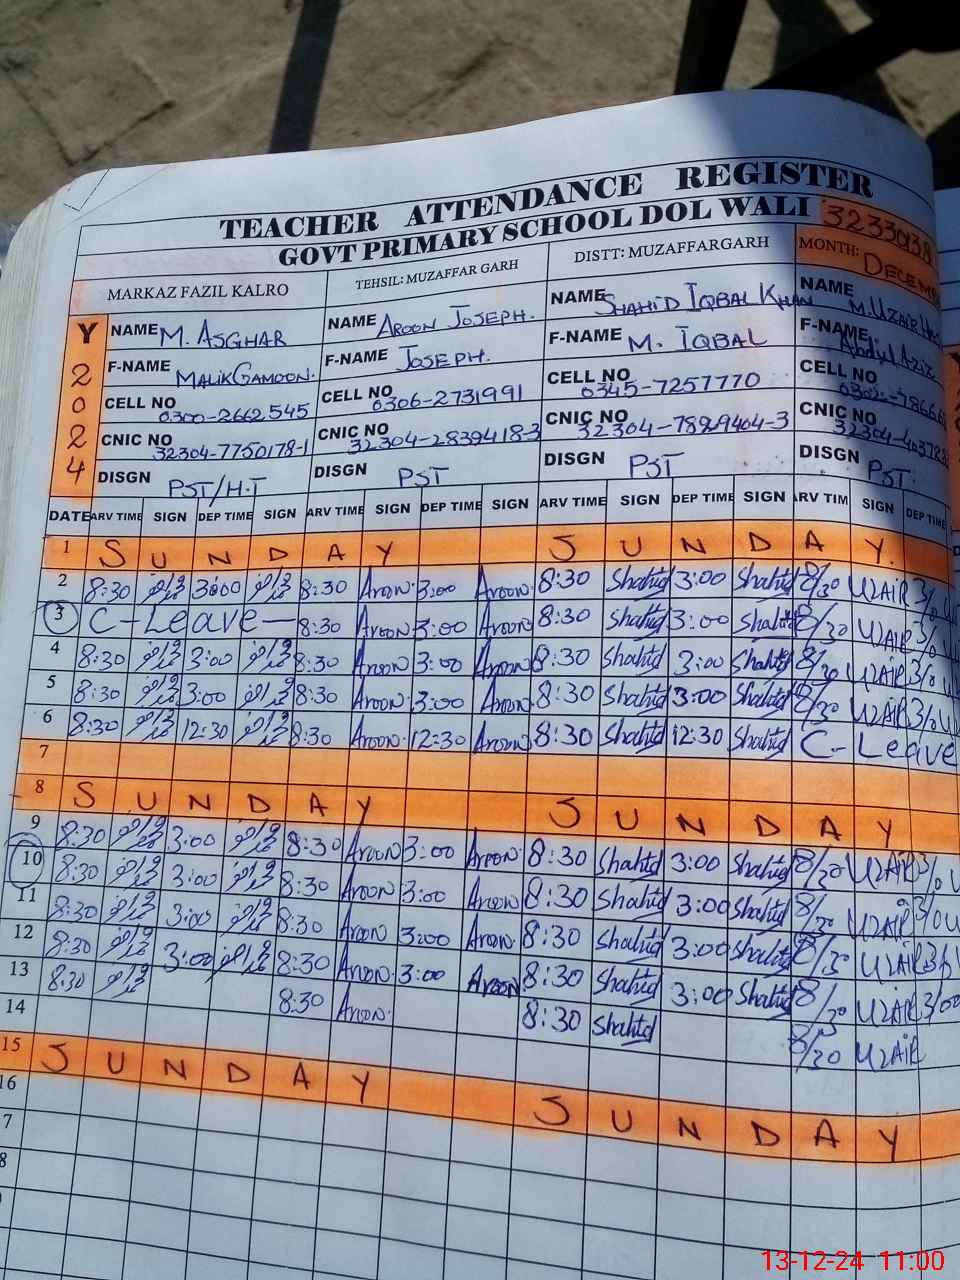 TEACHER ATTENDANCE REGISTER
GOVT PRIMARY SCHOOL DOL WALI 32330138
MARKAZ FAZIL KALRO TEHSIL: MUZAFFAR GARH DISTT: MUZAFFARGARH MONTH: DECEM
Y 2024
NAME M. ASGHAR NAME AROON JOSEPH. NAME SHAHID IQBAL KHAN NAME M. UZAIR
F-NAME MALIK GAMOON. F-NAME JOSEPH. F-NAME M. IQBAL F-NAME Abdul Aziz
CELL NO 0300-2662545 CELL NO 0306-2731991 CELL NO 0345-7257770 CELL NO
CNIC NO 32304-7750178-1 CNIC NO 32304-2839418-3 CNIC NO 32304-7899404-3 CNIC NO
DISGN PST/H.T DISGN PST DISGN PST DISGN PST.
DATE ARV TIME SIGN DEP TIME SIGN ARV TIME SIGN DEP TIME SIGN ARV TIME SIGN DEP TIME SIGN ARV TIM SIGN DEP TIME
1 SUNDAY SUNDAY.
2 8:30 3:00 8:30 Aroon 3:00 Aroon 8:30 Shahid 3:00 Shahid 8/30 UZAIR 3/0
3 C-Leave 8:30 Aroon 3:00 Aroon 8:30 Shahid 3:00 Shahid 8/30 UZAIR 3/0
4 8:30 3:00 8:30 Aroon 3:00 Aroon 8:30 Shahid 3:00 Shahid 8/30 UZAIR 3/0
5 8:30 3:00 8:30 Aroon 3:00 Aroon 8:30 Shahid 3:00 Shahid 8/30 UZAIR 3/0
6 8:30 12:30 8:30 Aroon 12:30 Aroon 8:30 Shahid 12:30 Shahid C-Leave
7
8 SUNDAY SUNDAY
9 8:30 3:00 8:30 Aroon 3:00 Aroon 8:30 Shahid 3:00 Shahid 8/30 UZAIR 3/0
10 8:30 3:00 8:30 Aroon 3:00 Aroon 8:30 Shahid 3:00 Shahid 8/30 UZAIR 3/0
11 8:30 3:00 8:30 Aroon 3:00 Aroon 8:30 Shahid 3:00 Shahid 8/30 UZAIR 3/0
12 8:30 3:00 8:30 Aroon 3:00 Aroon 8:30 Shahid 3:00 Shahid 8/30 UZAIR 3/00
13 8:30 8:30 Aroon. 8:30 Shahid 8/30 UZAIR
14
15 SUNDAY SUNDAY
16
7
8
13-12-24 11:00